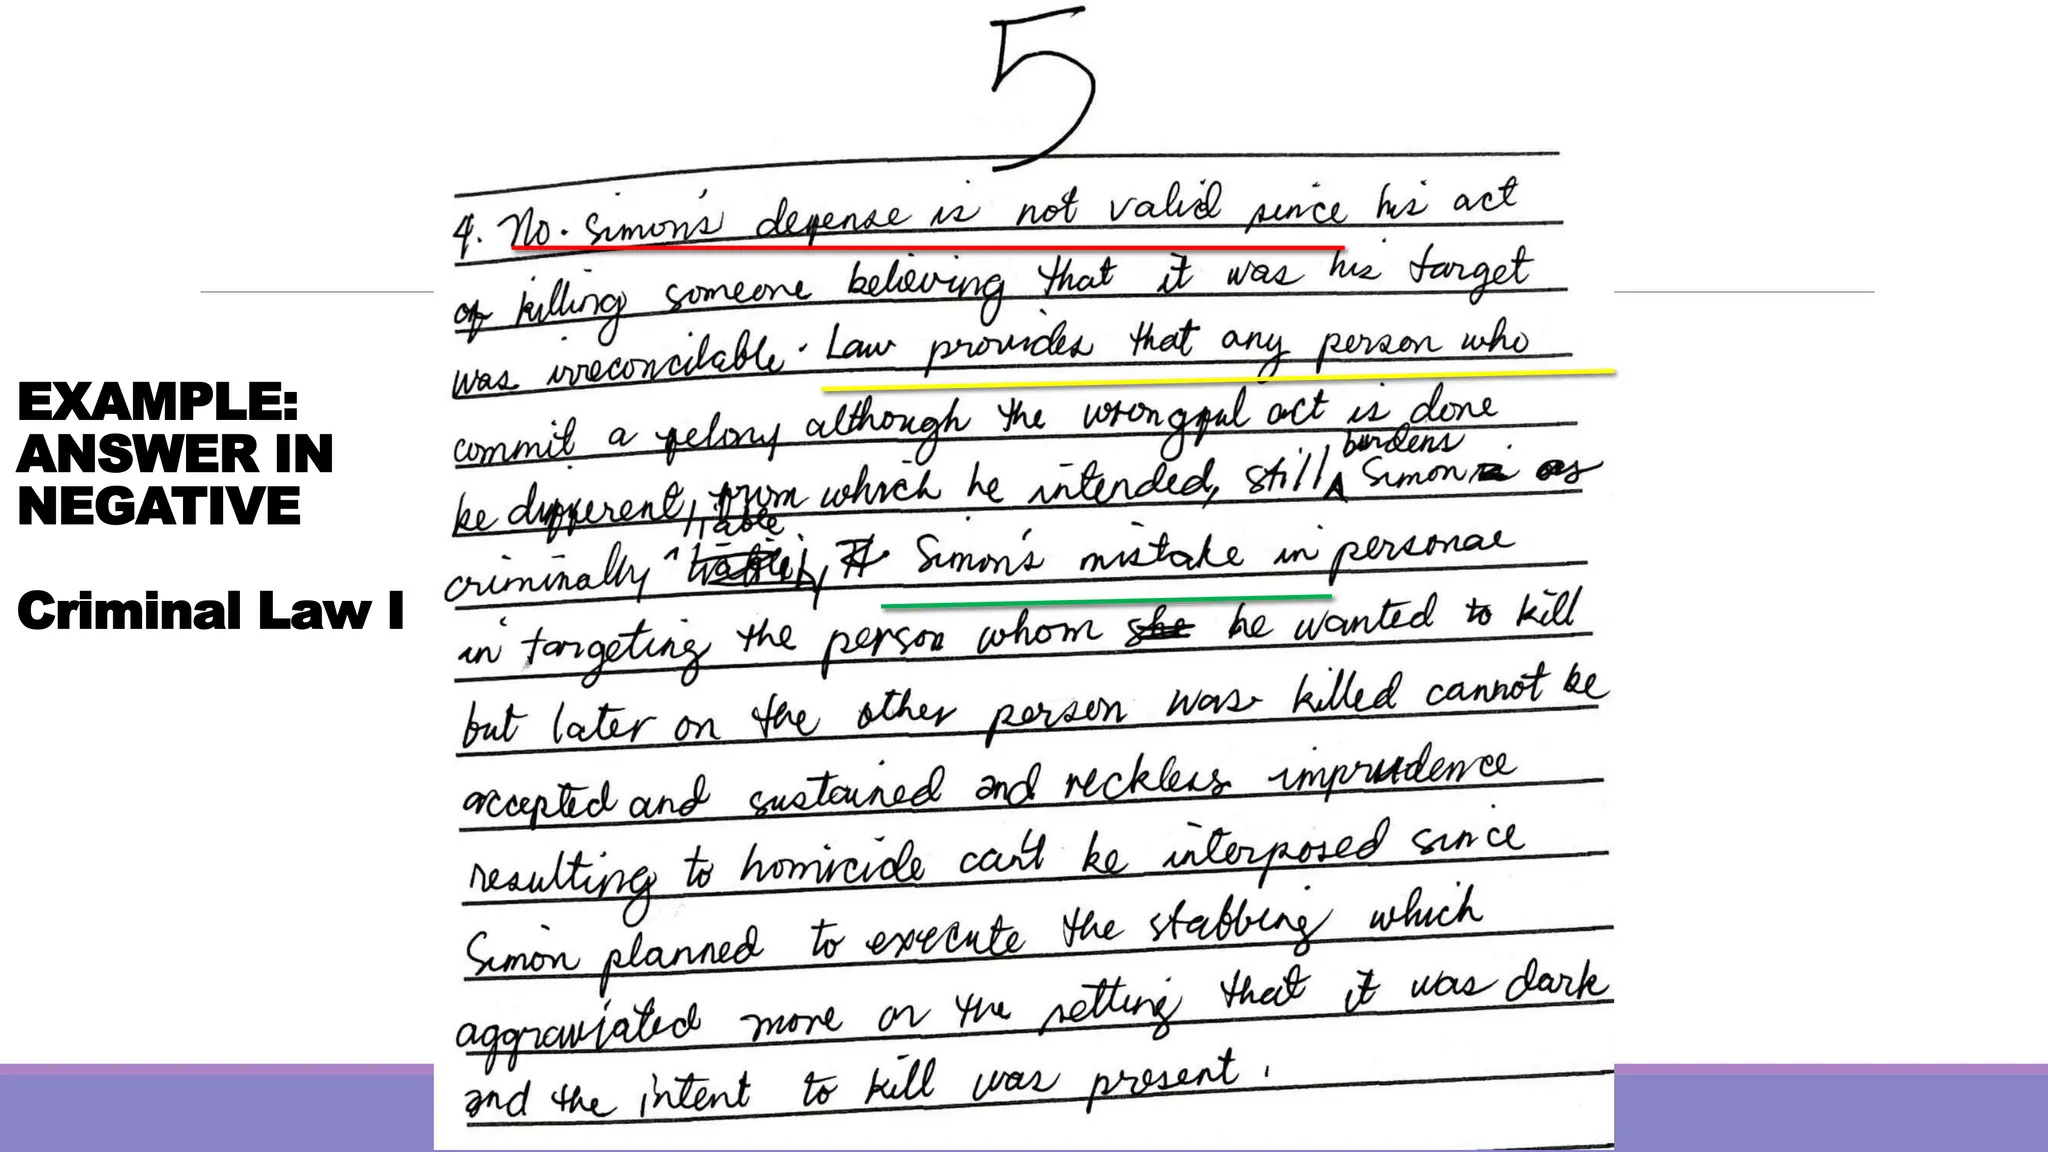 5
EXAMPLE:
ANSWER IN
NEGATIVE
Criminal Law I
4. No. Simon's defense is not valid since his act
of killing someone believing that it was his target
was irreconcilable. Law provides that any person who
commit a felony although the wrongful act is done
be different, from which he intended, still burdens Simon as
criminally liable, Simon's mistake in personae
in targeting the person whom she he wanted to kill
but later on the other person was killed cannot be
accepted and sustained and reckless imprudence
resulting to homicide can't be interposed since
Simon planned to execute the stabbing which
aggraviated more on the setting that it was dark
and the intent to kill was present.